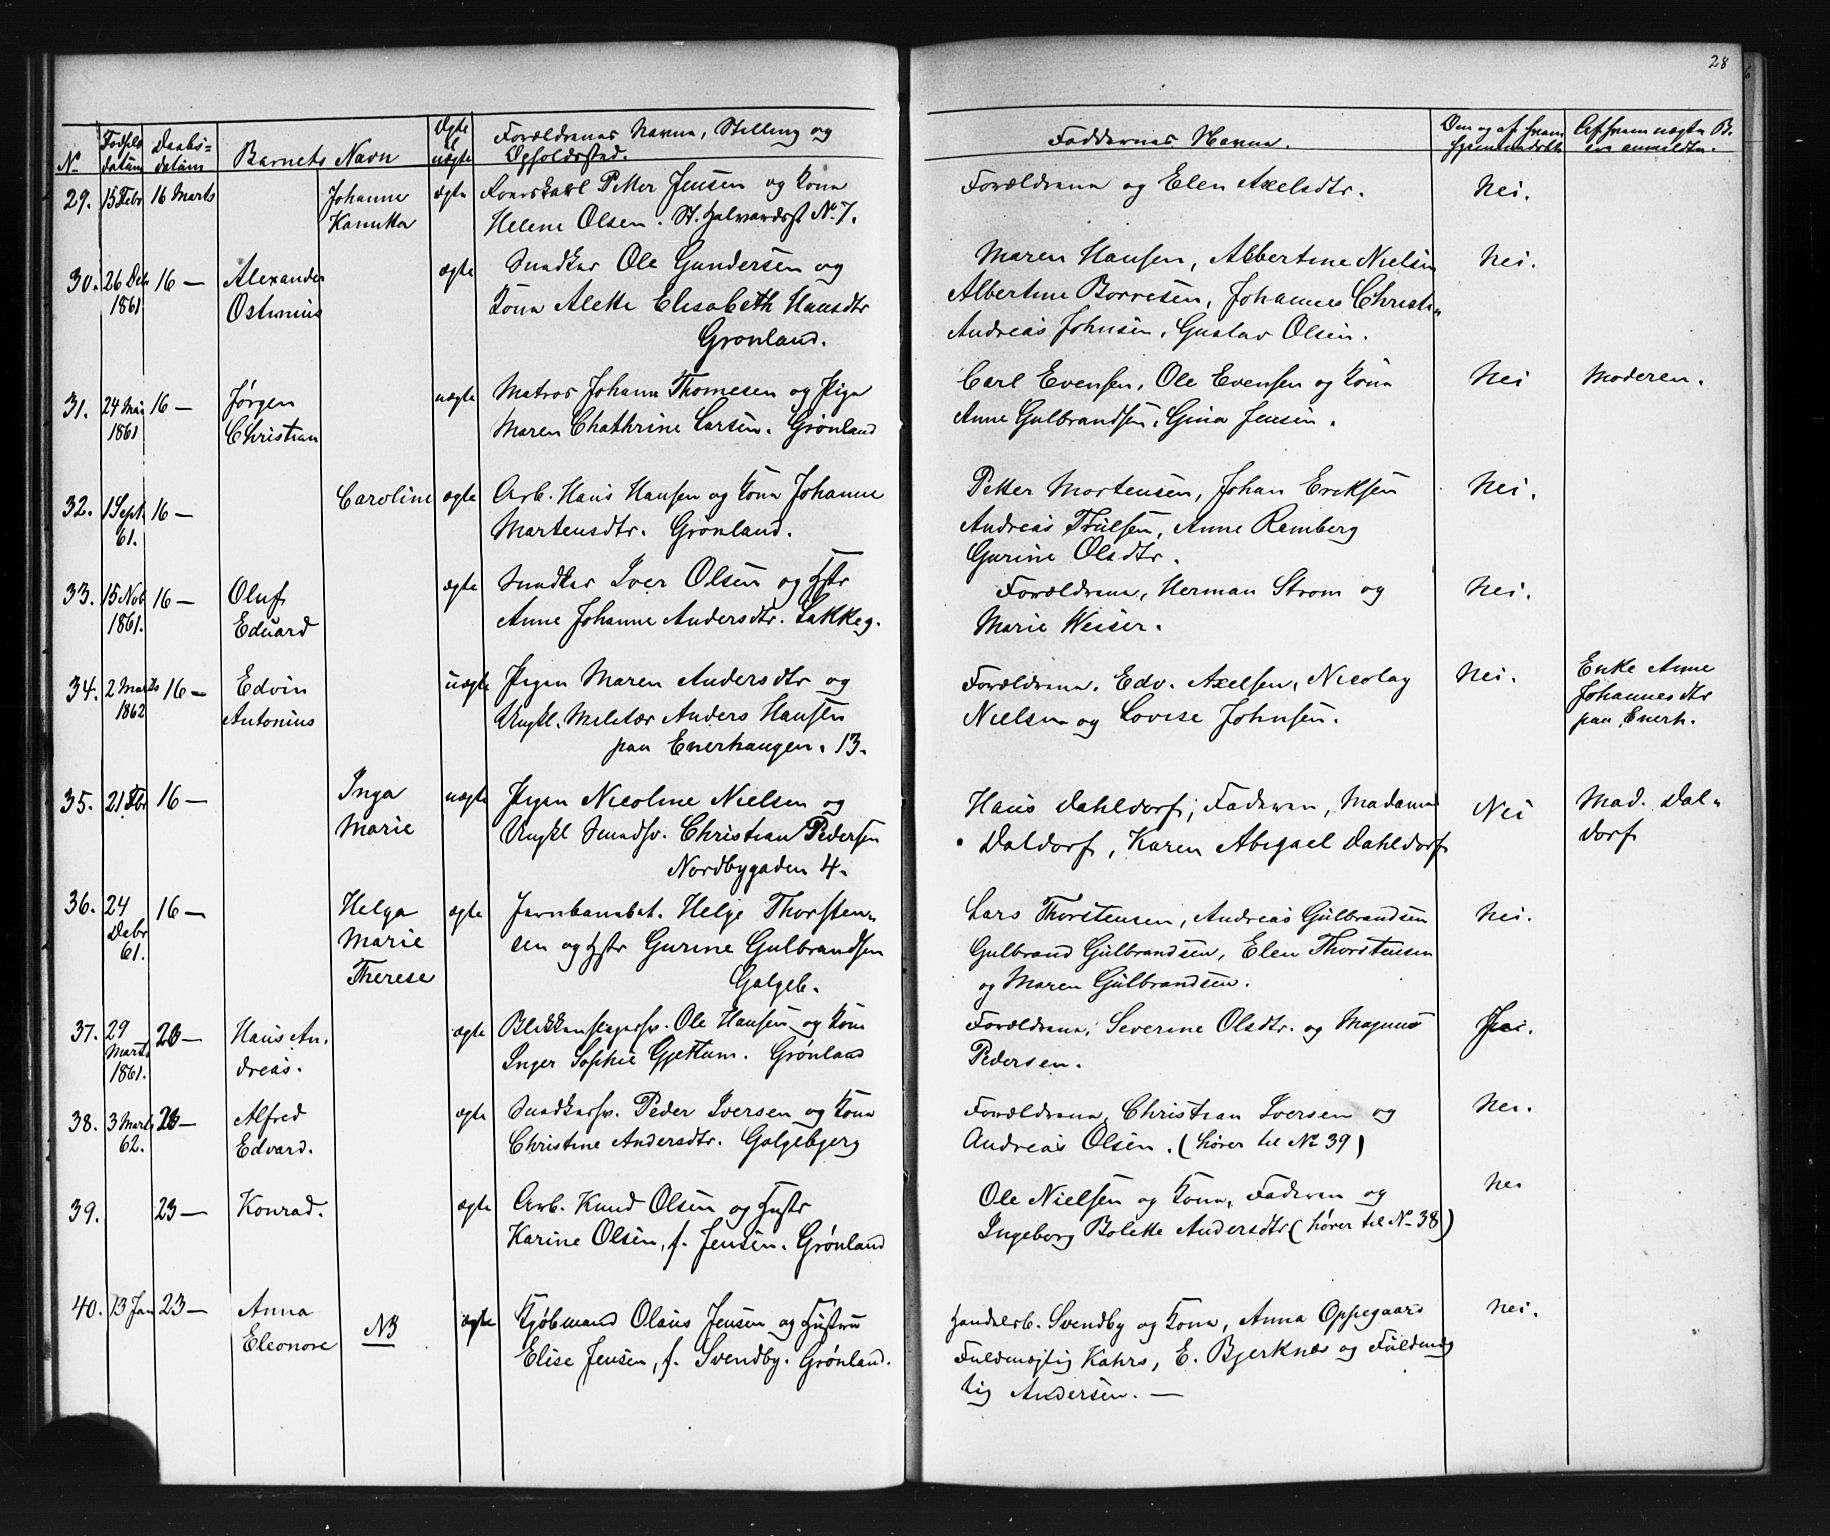 28
No
Fødsels datum
Daabs= datum
Barnets Navn
Ægte el uægte
Forældrenes Navne, Stilling og Opholdssted.
Faddernes Navne.
Om og af hvem
Af hvem uægte B. er anmeldte.
29. 15 Febr 16 Marts Johanne ægte Petter Jensen og Kone
Kanutta Helene Olsen. St. Halvardsgt No. 7.
Forældrene og Elen Axelsdtr. Nei.
30. 26 Dcb 1861 16 — Alexander ægte Snedker Ole Gundersen og
Ostinius Kone Alette Elisabeth Hansdtr
Grønland.
Maren Hansen, Albertine Nielsen Nei.
Albertine Borresen, Johannes Christ
Andreas Johnsen, Gustav Olsen.
31. 24 Mai 1861 16 — Jørgen uægte Matros Johann Thomesen og Pige
Christian Maren Chathrine Larsen. Grønland
Carl Evensen, Ole Evensen og Kone Nei Moderen.
Anne Gulbrandsen, Gina Jensen.
32. 1 Sept. 61. 16 — Caroline ægte Arb. Hans Hansen og Kone Johanne
Martensdtr. Grønland.
Petter Mortensen, Johan Eriksen Nei.
Andreas Trulsen, Anne Remberg
Gurine Olsdtr.
33. 15 Nov 1861. 16 — Oluf ægte Snedker Iver Olsen og Hstr
Eduard Anne Johanne Andersdtr. Lakkeg.
Forældrene, Herman Strom og Nei.
Marie Weiser.
34. 2 Marts 1862 16 — Edvin uægte Pigen Maren Andersdtr og
Antonius Ungkl. Militær Anders Hansen
paa Enerhaugen. 13.
Forældrene. Edv. Axelsen, Nicolay Nei. Enke Anne
Nielsen og Lovise Johnsen. Johannesdtr
paa Enerh.
35. 21 Fbr 16 — Inga uægte Pigen Nicoline Nielsen og
Marie Ungkl Smedsv. Christian Pedersen
Nordbygaden 4.
Hans Dahldorf, Faderen, Madame Nei Mad. Dal„
Daldorf, Karen Abigael Dahldorf dorf
36. 24 Debr 61. 16 — Helga ægte Jernbanebet. Helge Thorsten„
Marie sen og Hstr Gurine Gulbrandsen
Therese Galgeb.
Lars Thorstensen, Andreas Gulbrandsen Nei.
Gulbrand Gulbrandsen, Elen Thorstensen
og Maren Gulbrandsen.
37. 29 Marts 1861. 23 — Hans An. ægte Blikkenslagersv. Ole Hansen og Kone
dreas. Inger Sophie Gjettum. Grønland
Forældrene, Severine Olsdtr. og Magnus
Pedersen.
38. 3 Marts 62. 23 — Alfred ægte Snedkersv. Peder Iversen og Kone
Edvard. Christine Andersdtr. Galgebjerg
Forældrene, Christian Iversen og Nei.
Andreas Olsen. (hører til No 39)
39. 23 — Konrad. ægte Arb. Knud Olsen og Hustr
Karine Olsen, f. Jensen. Grønland
Ole Nielsen og Kone, Faderen og Nei
Ingeborg Bolette Andersdtr (hører til No 38)
40. 13 Jan 23 — Anna NB ægte Kjøbmand Olaus Jensen og Hustru
Eleonore Elise Jensen, f. Svendby. Grønland.
Handelsb. Svendby og Kone, Anna Oppegaard Nei.
Fuldmægtig Kahrs, E. Bjerknes og Fuldmæg
tig Andersen. —